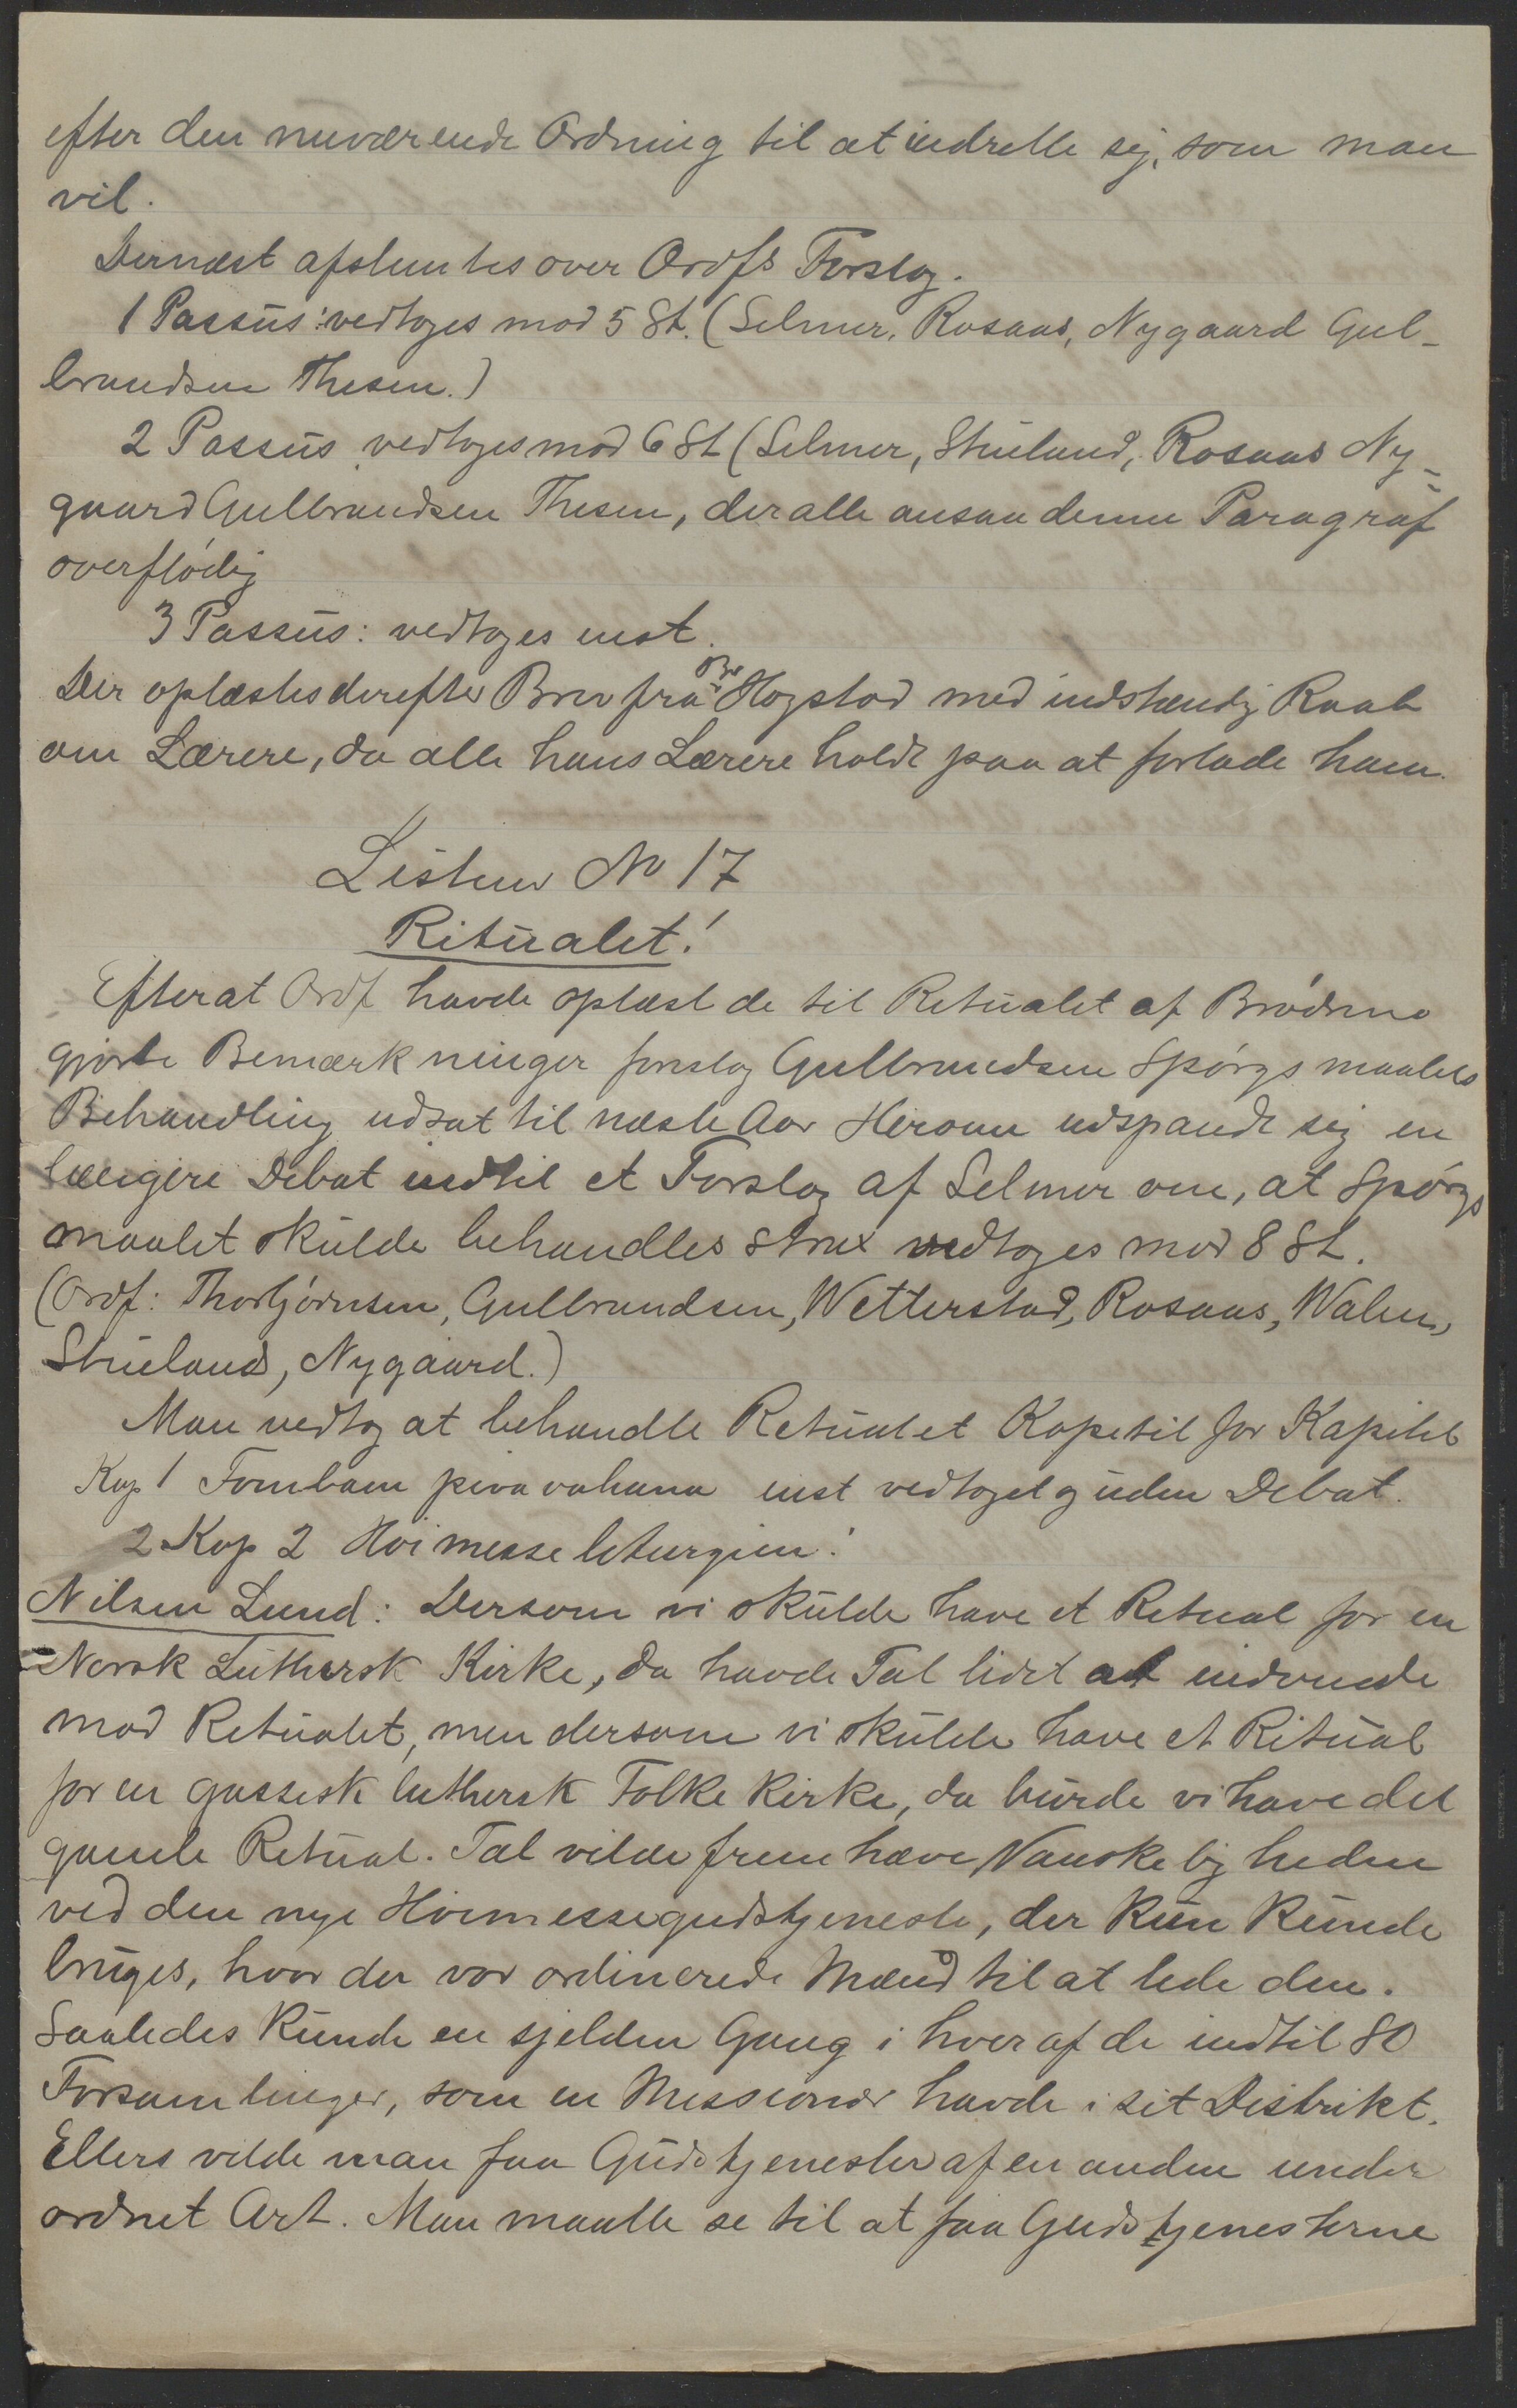 efter den nuværende Ordning til at indrette sig, som man
vil.
Dernæst afstemtes over Ordfs Forslag.
1 Passus: vedtoges mod 5 St. (Selmer, Rosaas, Nygaard Gul-
brandsen Thesen.)
2 Passus vedtoges mod 6 St (Selmer, Strüland, Rosaas Ny-
gaard Gulbrandsen Thesen, der alle ansaa denne Paragraf
overflødig
3 Passus: vedtoges enst.
Der oplæstes derefter Brev fra Br Hogstad med indstændig Raab
om Lærere, da alle hans Lærere holdt paa at forlade ham.
Listen No 17
Ritualet!
Efterat Ordf havde oplæst de til Retualet af Brødrene
gjorte Bemærkninger forslog Gulbrandsen Spørgsmaalets
Behandling udsat til næste Aar Herom udspandt sig en
længere Debat indtil et Forslag af Selmer om, at Spørgs
maalet skulde behandles strax vedtoges mod 8 St.
(Ordf: Thorbjørnsen, Gulbrandsen, Wetterstad, Rosaas, Walen,
Strüland, Nygaard.)
Man vedtog at behandle Retualet Kapetil for Kapitel
Kap 1 Fombam pivavahana enst vedtaget g uden Debat.
2 Kap 2 Høimesse liturgien!
Nilsen Lund: Dersom vi skulde have et Retual for en
Norsk Luthersk Kirke, da havde Tal lidet at indvende
mod Retualet, men dersom vi skulde have et Ritual
for en gassisk luthersk Folke kirke, da burde vi have det
gamle Retual. Tal vilde fremhæve Vanskeligheden
ved den nye Høimessegudstjeneste, der kun kunde
bruges, hvor der var ordinerede Mænd til at lede den.
Saaledes kunde en sjelden Gang i hver af de indtil 80
Forsamlinger, som en Missionær havde i sit Distrikt.
Ellers vilde man faa Gudstjenester af en anden under
ordnet Art. Man maatte se til at faa Gudstjenesterne